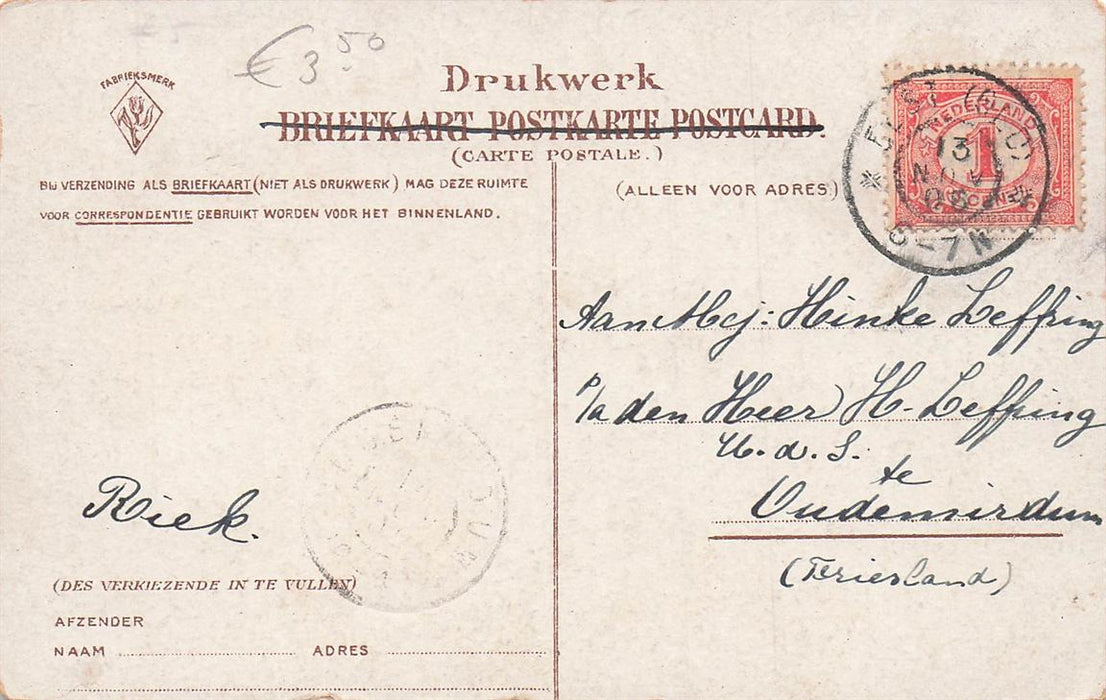 € 3.50
FABRIEKSMERK
Drukwerk
BRIEFKAART POSTKARTE POSTCARD.
(CARTE POSTALE.)
BIJ VERZENDING ALS BRIEFKAART (NIET ALS DRUKWERK) MAG DEZE RUIMTE
VOOR CORRESPONDENTIE GEBRUIKT WORDEN VOOR HET BINNENLAND.
(ALLEEN VOOR ADRES)
NEDERLAND
1
CENT
13
NOV
08
6-7 N
Aan Mej: Hinke Leffring
p/a den Heer H. Leffring
H.d.S.
te
Oudemirdum
(Friesland)
Riek.
(DES VERKIEZENDE IN TE VULLEN)
AFZENDER
NAAM
ADRES